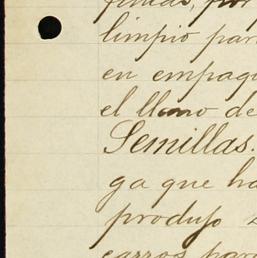 limpio par
en empaqu
el llano de
Semillas.
ga que ha
produjo
carros para